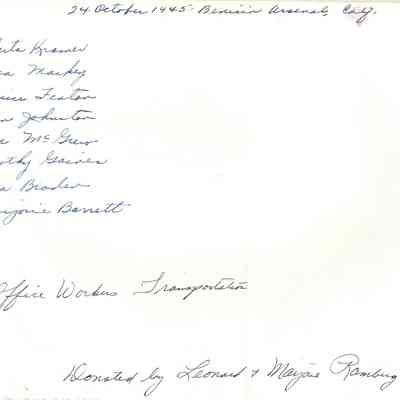 24 October 1945 - Benicia Arsenal, Calif.
erta Kramer
a Markey
ice Fenton
n Johnston
McGrew
othy Gaines
a Braden
rjorie Barrett
Office Workers Transportation
Donated by Leonard & Marjorie Romberg